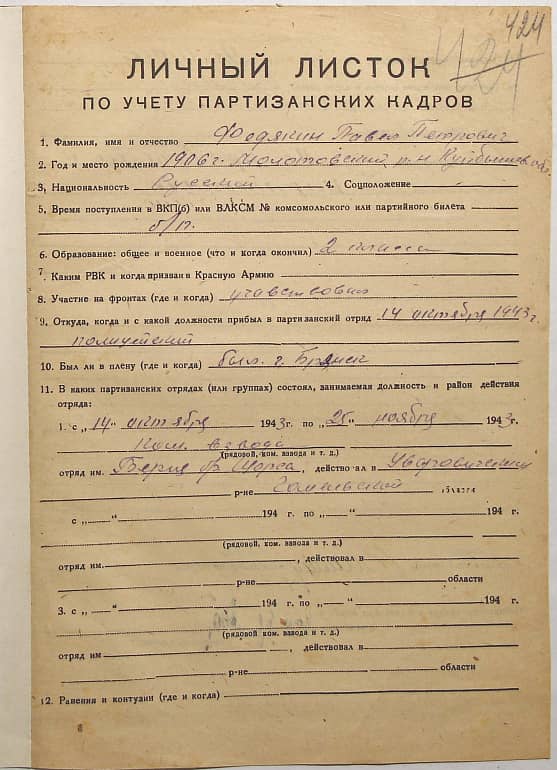 424
424
ЛИЧНЫЙ ЛИСТОК
ПО УЧЕТУ ПАРТИЗАНСКИХ КАДРОВ
1. Фамилия, имя и отчество Федякин Павел Петрович
2. Год и место рождения 1906 г. Молотовский р-н Куйбышев обл.
3, Национальность Русский 4. Соцположение
5. Время поступления в ВКП(б) или ВЛКСМ № комсомольского или партийного билета
б/п.
6. Образование: общее и военное (что и когда окончил) 2 класса
7. Каким РВК и когда призван в Красную Армию
8. Участие на фронтах (где и когда) участвовал
9. Откуда, когда и с какой должности прибыл в партизанский отряд 14 октября 1943 г.
полицейский
10. Был ли в плену (где и когда) был г. Брянск
11. В каких партизанских отрядах (или группах) состоял, занимаемая должность и район действия
отряда:
1. с „14" октября 1943 г. по „25" ноября 1943 г.
Ком. взвода
(рядовой, ком. взвода и т. д.)
отряд им. Берия бр Щорса, действовал в Уваровичский
р-не Гомельской области
с „—" 194 г. по „—" 194 г.
(рядовой, ком. взвода и т. д.)
отряд им. , действовал в
р-не области
3. с „—" 194 г. по „—" 194 г.
(рядовой, ком. взвода и т. д.)
отряд им , действовал в
р-не области
12. Ранения и контузии (где и когда)